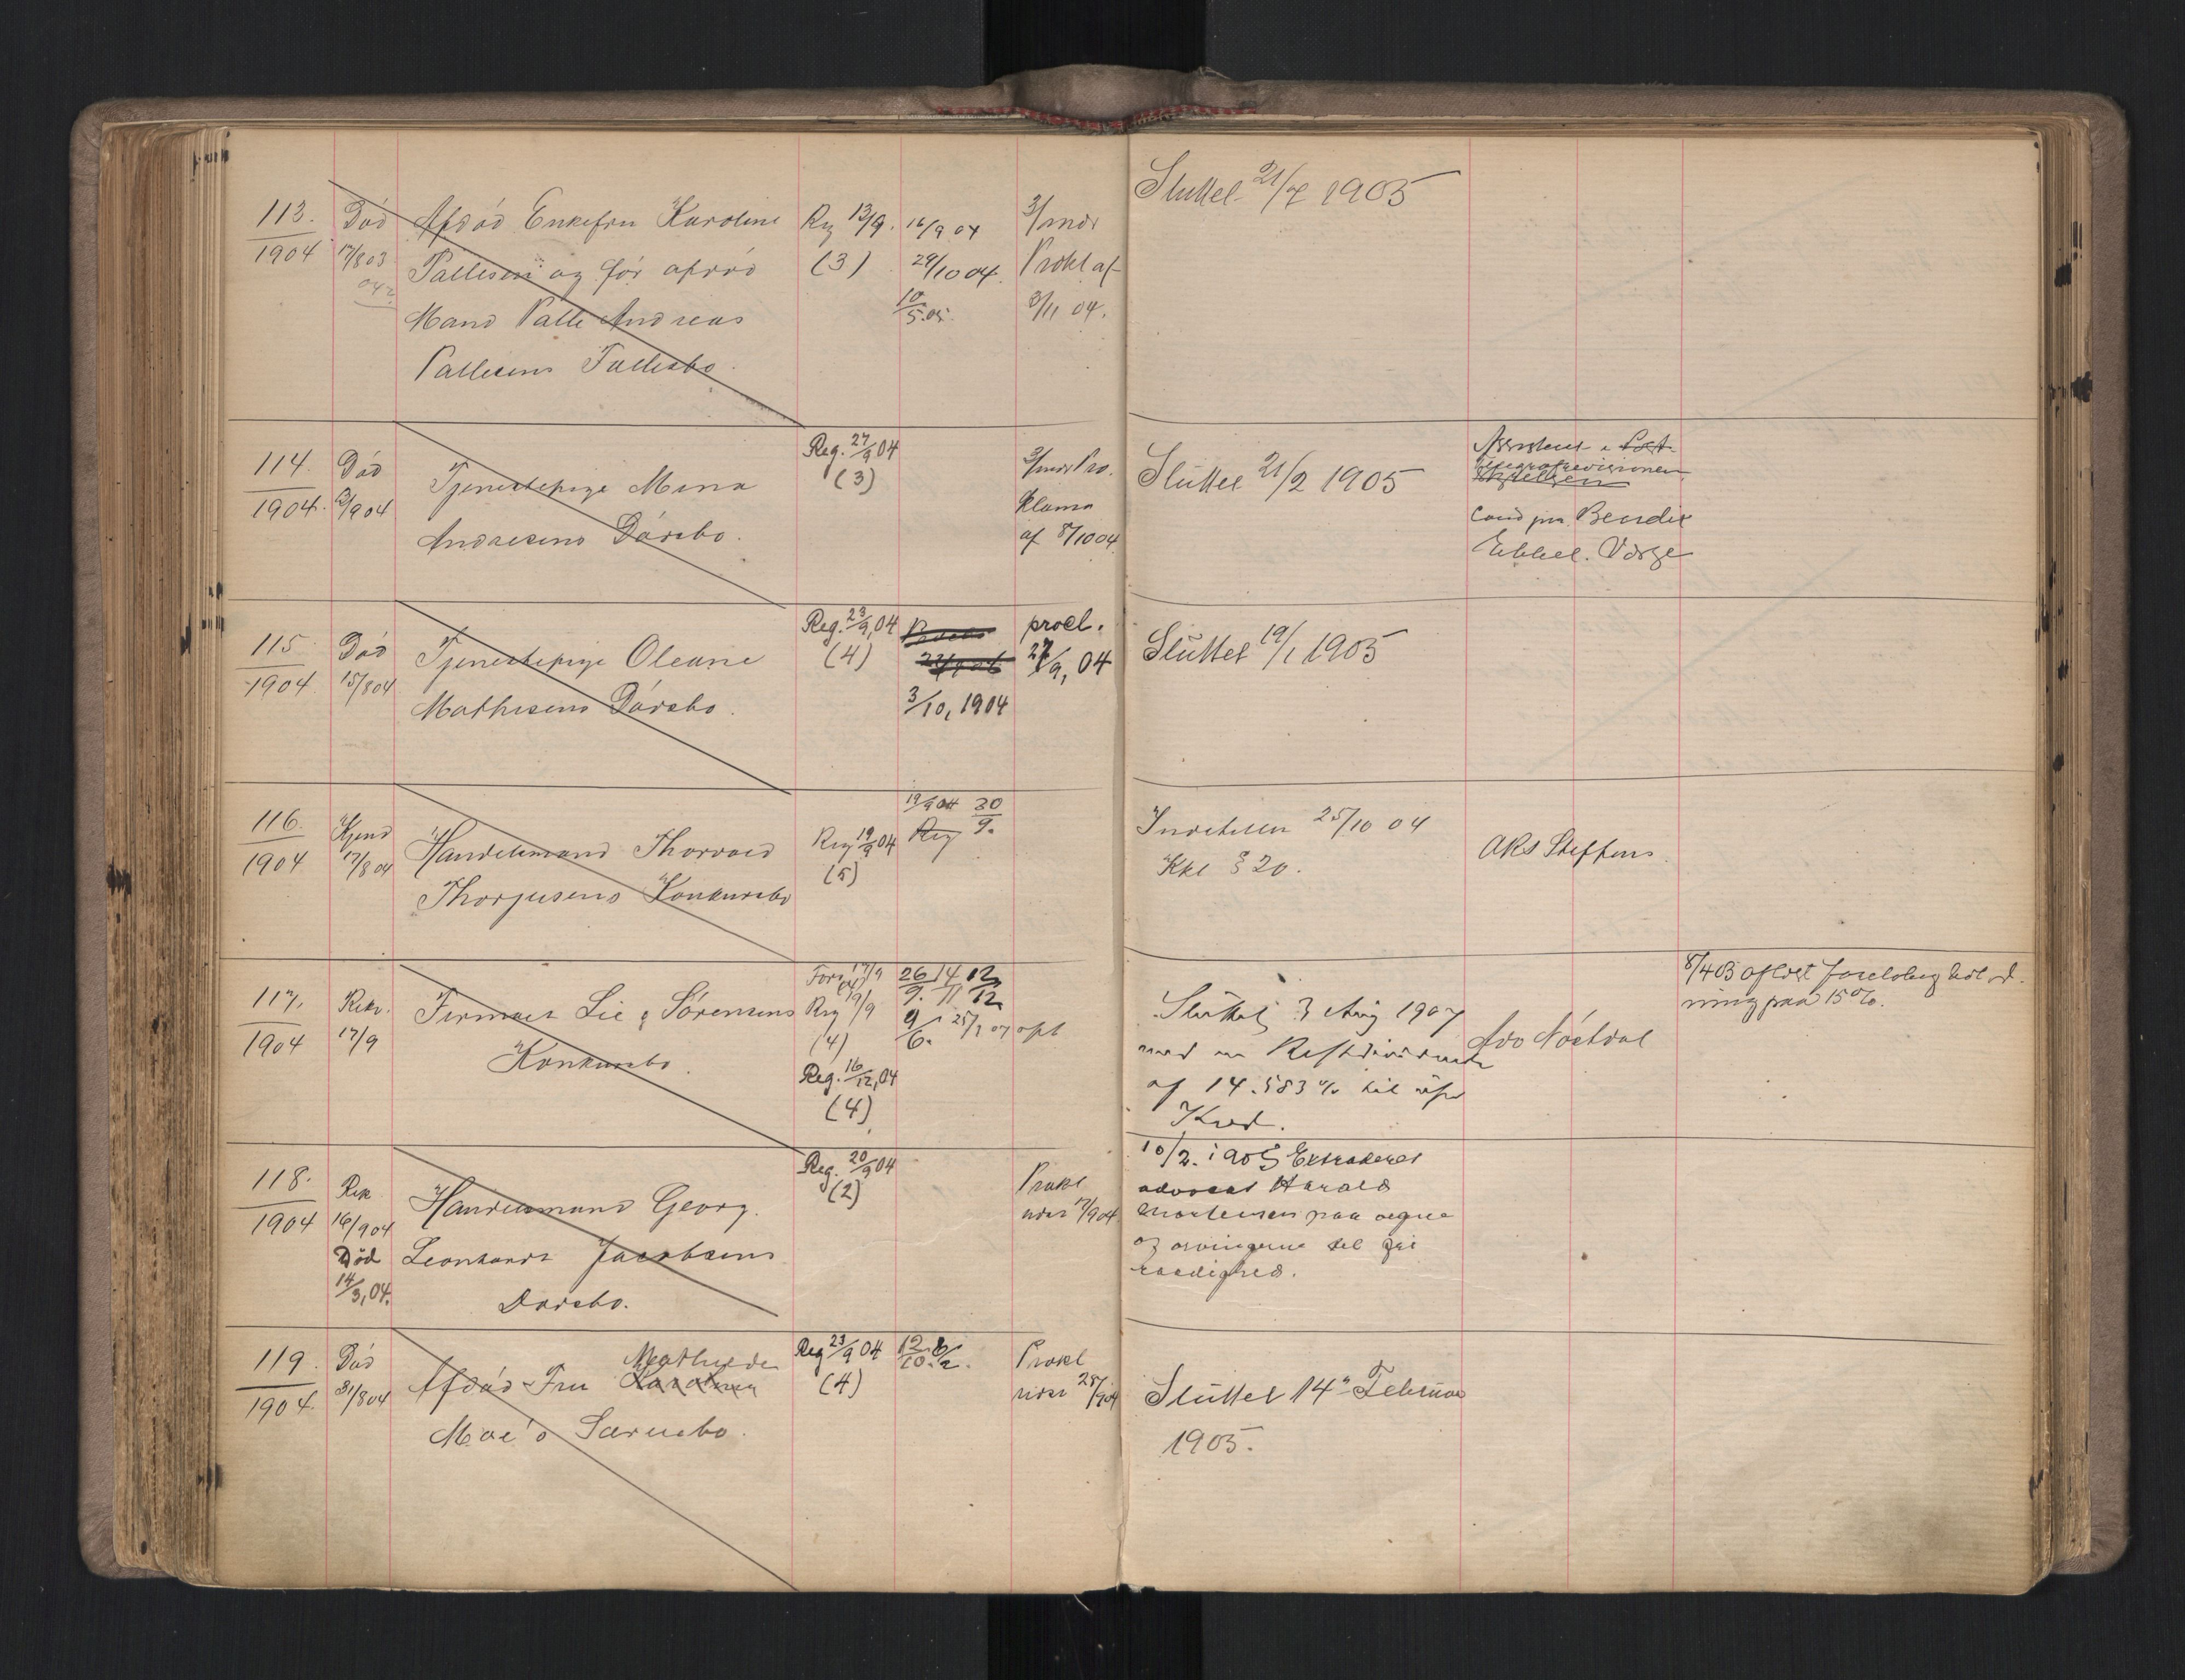 113.
1904
Död
17/8 03
04?
Afdöd Enkefru Karoline
Pallesen og før afdöd
Mand Palle Andreas
Pallesens Fællesbo.
Reg 13/9.
(3)
16/9 04
29/10 04.
10/5.05.
3/mdr
Prokl af
3/11 04.
Sluttet 21/7 1905
114.
1904.
Död
3/9 04
Tjenestepige Mina
Andresens Dödsbo.
Reg. 27/9 04
(3)
3/mdr Pro.
klama
af 8/10 04
Sluttet 21/2 1905
Assistent i Post
Telegrafrevisionen
Cand jur. Bendix
Ebbell. Værge
115
1904
Död
15/8 04
Tjenestepige Oleane
Mathisens Dödsbo.
Reg. 23/9, 04
(4)
3/10, 1904
procl.
27/9, 04
Sluttet 19/1 1905
116.
1904
Kjend
17/8 04
Handelsmand Thorvald
Thorjusens Konkursbo
Reg 19/9 04
(5)
19/9 04 30/9.
Reg
Indstillet 25/10 04
Kkl § 20.
ORS Steffens.
117.
1904
Rekv.
17/9
Firmaet Lie & Sörensens
Konkursbo.
Fors 17/9 04
Reg 19/9
(4)
Reg. 16/12, 04
(4)
26/9. 14/11 12/12
9/6. 25/7 07 opt
Sluttet 3 Aug 1907
med en Restdividende
af 14.583 % til uprio
Kred.
Adv Nöstdal
8/4 05 afholdt foreløbig udlod-
ning paa 15%.
118.
1904
Rek
16/9 04
Död
14/3, 04.
Handelsmand Georg
Leonhardt Jacobsens
Dödsbo.
Reg. 20/9 04
(2)
Prokl
udst 17/9 04
10/2. 1905 Extraderet
advocat Harald
Mortensen paa egne
og arvingerne til fri
raadighed.
119.
1904.
Död
31/8 04
Afdöd Fru Mathilde
Moe's Særuebo.
Reg 23/9 04
(4)
12/10. 8/2.
Prokl
udst 28/9 04
Sluttet 14de Februar
1905.